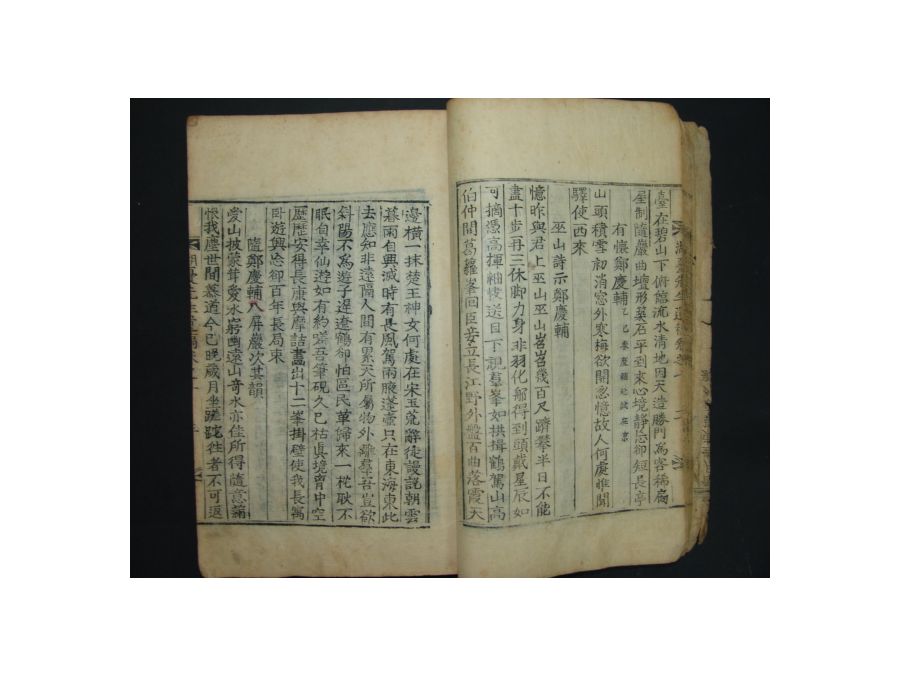 臺在碧山下俯臨流水清地因天造勝門爲客稀扃
屋制隨巖曲壇形築石平到來心境靜忘却短長亭
有懷鄭慶輔
山頭積雪初消窓外寒梅欲開忽憶故人何處惟聞
驛使西來
巫山詩示鄭慶輔
憶昨與君上巫山巫山岧岧幾百尺躋攀半日不能
盡十步再三休脚力身非羽化那得到頭戴星辰如
可摘憑高揮袖快送目下視羣峯如拱揖鶴駕山高
伯仲間葛蘿峯回臣妾立長江野外盤百曲落霞天
邊橫一抹楚王神女何處在宋玉荒辭徒謾説朝雲
暮雨自興滅時有長風駕兩腋蓬壺只在東海東此
去應知非遠隔人間有累天所屬物外離羣吾豈欲
斜陽不爲遊子遲遼鶴却怕區民革歸來一枕耿不
眠自幸仙遊如有約嗟吾筆硯久已枯眞境胷中空
歷歷安得長康與摩詰畵出十二峯掛壁使我長寓
卧遊興忘却百年長局束
隨鄭慶輔入屏巖次其韻
愛山披蒙茸愛水窮幽遠山奇水亦佳所得隨意
恨我塵世間慕道今已晚歲月坐蹉跎徃者不可返